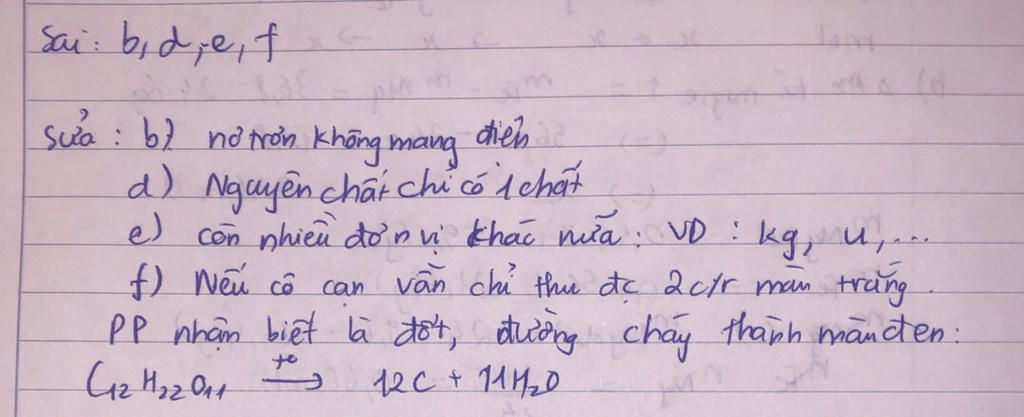 Sai: b, d, e, f
Sửa: b) nơ trơn không mang điện
d) Nguyên chất chỉ có 1 chất
e) còn nhiều đơn vị khác nữa: VD: kg, u,...
f) Nếu cô cạn vẫn chỉ thu đc 2 c/r màu trắng.
PP nhận biết là đốt, đường cháy thành màu đen:
C₁₂H₂₂O₁₁ —t°→ 12C + 11H₂O